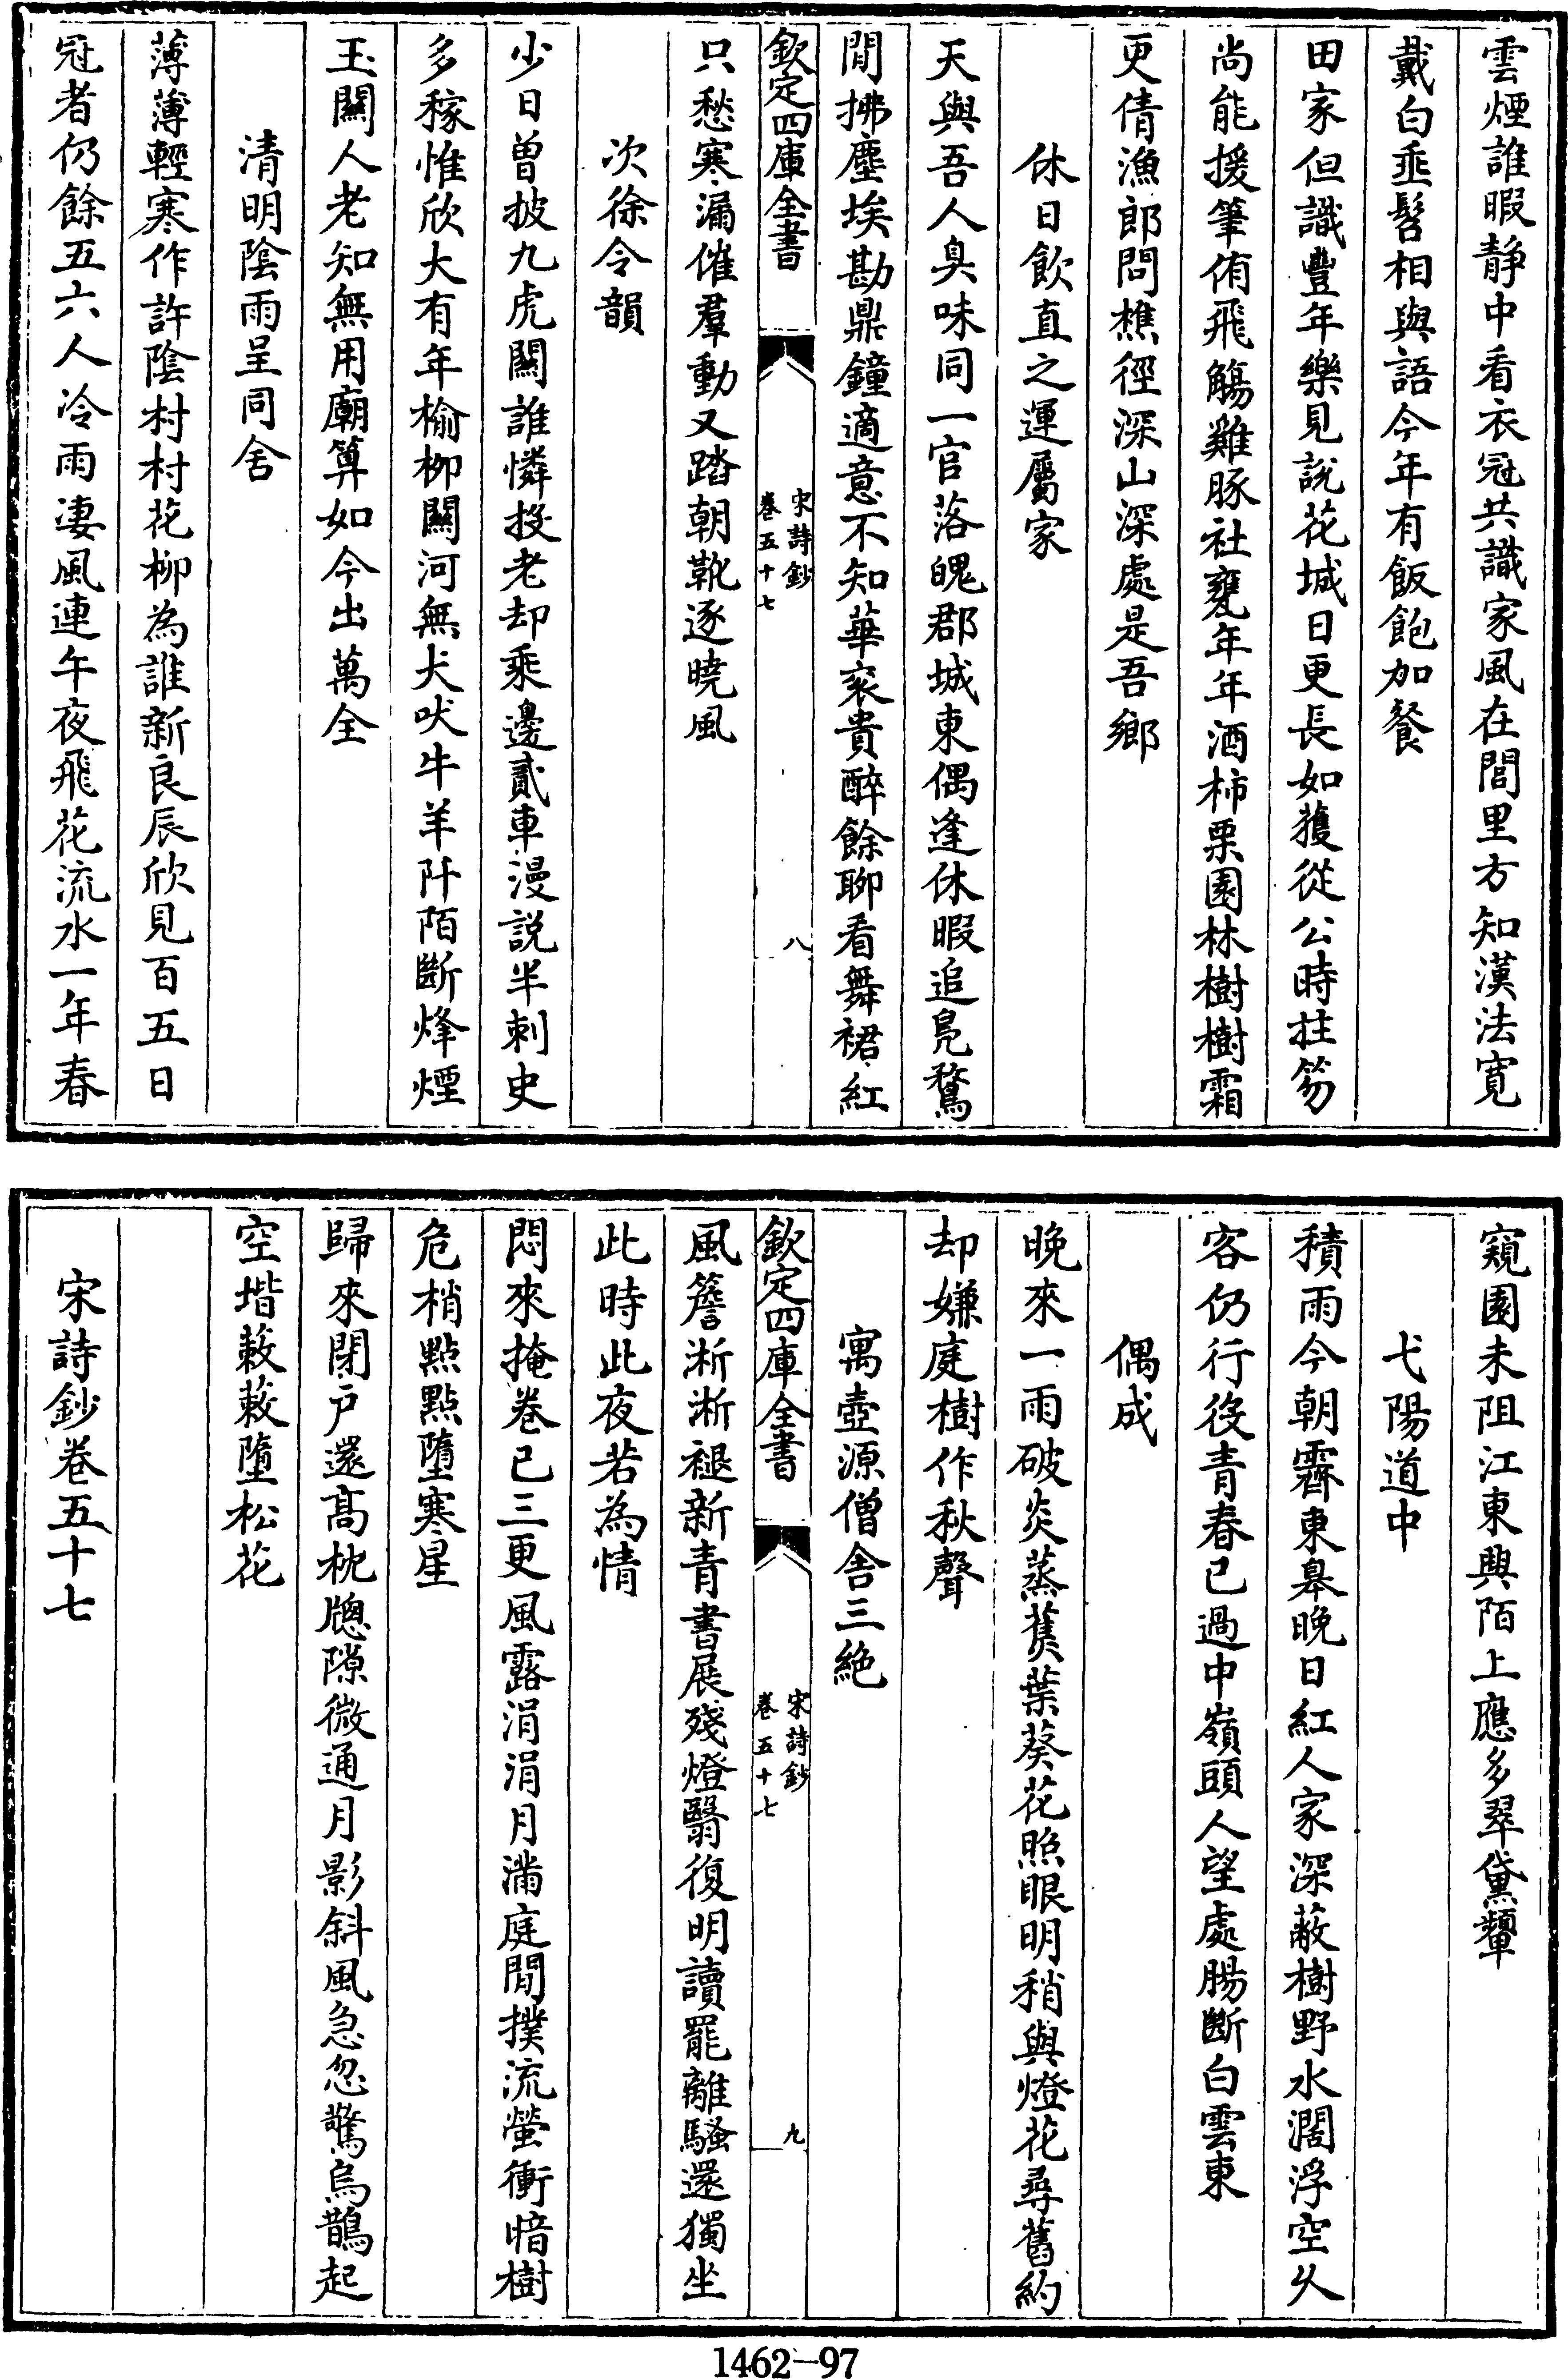 雲煙誰暇静中看衣冠共識家風在閭里方知漢法寛
戴白垂髫相與語今年有飯飽加餐
田家但識豐年樂見説花城日更長如獲從公時拄笏
尚能援筆侑飛觴雞豚社甕年年酒柿栗園林樹樹霜
更倩漁郎問樵徑深山深處是吾鄉
休日飲直之運屬家
天與吾人臭味同一官落魄郡城東偶逢休暇追鳬鶩
閒拂塵埃勘鼎鐘適意不知華衮貴醉餘聊看舞裙紅
欽定四庫全書
宋詩鈔
卷五十七
八
只愁寒漏催羣動又踏朝靴逐曉風
次徐令韻
少日曽披九虎關誰憐投老却乘邊貳車漫説半刺史
多稼惟欣大有年榆柳關河無犬吠牛羊阡陌斷烽煙
玉關人老知無用廟算如今出萬全
清明陰雨呈同舍
薄薄輕寒作許陰村村花柳為誰新良辰欣見百五日
冠者仍餘五六人冷雨凄風連午夜飛花流水一年春
窺園未阻江東興陌上應多翠黛顰
弋陽道中
積雨今朝霽東皋晚日紅人家深蔽樹野水濶浮空久
客仍行役青春已過中嶺頭人望處腸斷白雲東
偶成
晚來一雨破炎蒸蕉葉葵花照眼明稍與燈花尋舊約
却嫌庭樹作秋聲
寓壺源僧舍三絶
欽定四庫全書
宋詩鈔
卷五十七
九
風簷淅淅褪新青書展殘燈翳復明讀罷離騷還獨坐
此時此夜若為情
悶來掩卷已三更風露涓涓月滿庭閒撲流螢衝暗樹
危梢點點墮寒星
歸來閉戸還髙枕牕隙微通月影斜風急忽驚烏鵲起
空堦蔌蔌墮松花
宋詩鈔卷五十七
1462—97